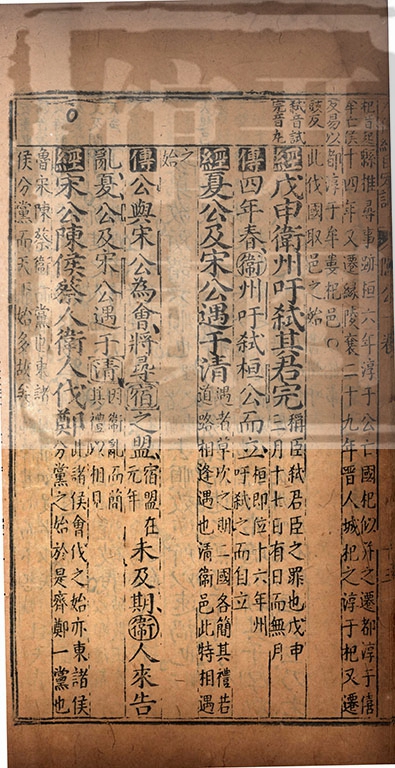 杞音起縣推尋事跡桓六年淳于公亡國杞似并之遷都淳于僖
牟亡侯十四年又遷緣陵襄二十九年晉人城杞之淳于杞又遷
反易以都淳于牟婁杞邑○
豉反此伐國取邑之始
弒音試
完音丸
經戊申衛州吁弒其君完稱臣弒君臣之罪也戊申
三月十七日有日而無月
傳四年春衛州吁弒桓公而立桓即位十六年州
吁弒之而自立
經夏公及宋公遇于清遇者草次之期二國各簡其禮若
道路相逢遇也清衛邑此特相遇
之
始
傳公與宋公為會將尋宿之盟宿盟在
元年未及期衛人來告
亂夏公及宋公遇于清因衛亂而簡
其禮以相見
經宋公陳侯蔡人衛人伐鄭此諸侯會伐之始亦東諸侯
分黨之始於是齊鄭一黨也
魯宋陳蔡衛一黨也東諸
侯分黨而天下始多故矣